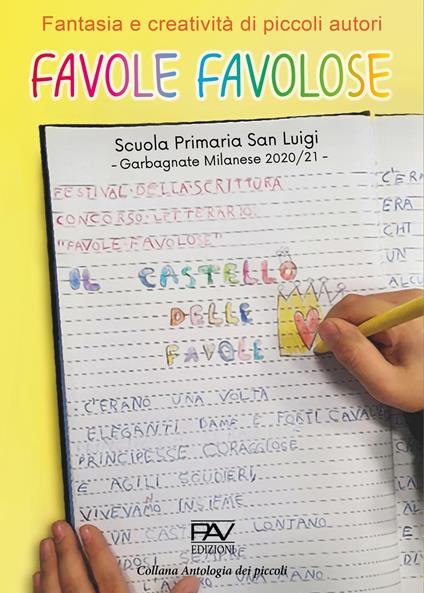 Fantasia e creatività di piccoli autori
FAVOLE FAVOLOSE
Scuola Primaria San Luigi
- Garbagnate Milanese 2020/21 -
FESTIVAL DELLA SCRITTURA
CONCORSO LETTERARIO
"FAVOLE FAVOLOSE"
IL CASTELLO
DELLE
FAVOLE
C'ERANO UNA VOLTA
ELEGANTI DAME E FORTI CAVALE
PRINCIPESSE CORAGGIOSE
E AGILI SCUDIERI,
VIVEVANO INSIEME
UN CAST LONTANO
NDOSI SEMPRE
L'ALTRO UNA MANO.
C'ERA
ERA
CHI
UN
ALCU
PAV
EDIZIONI
Collana Antologia dei piccoli